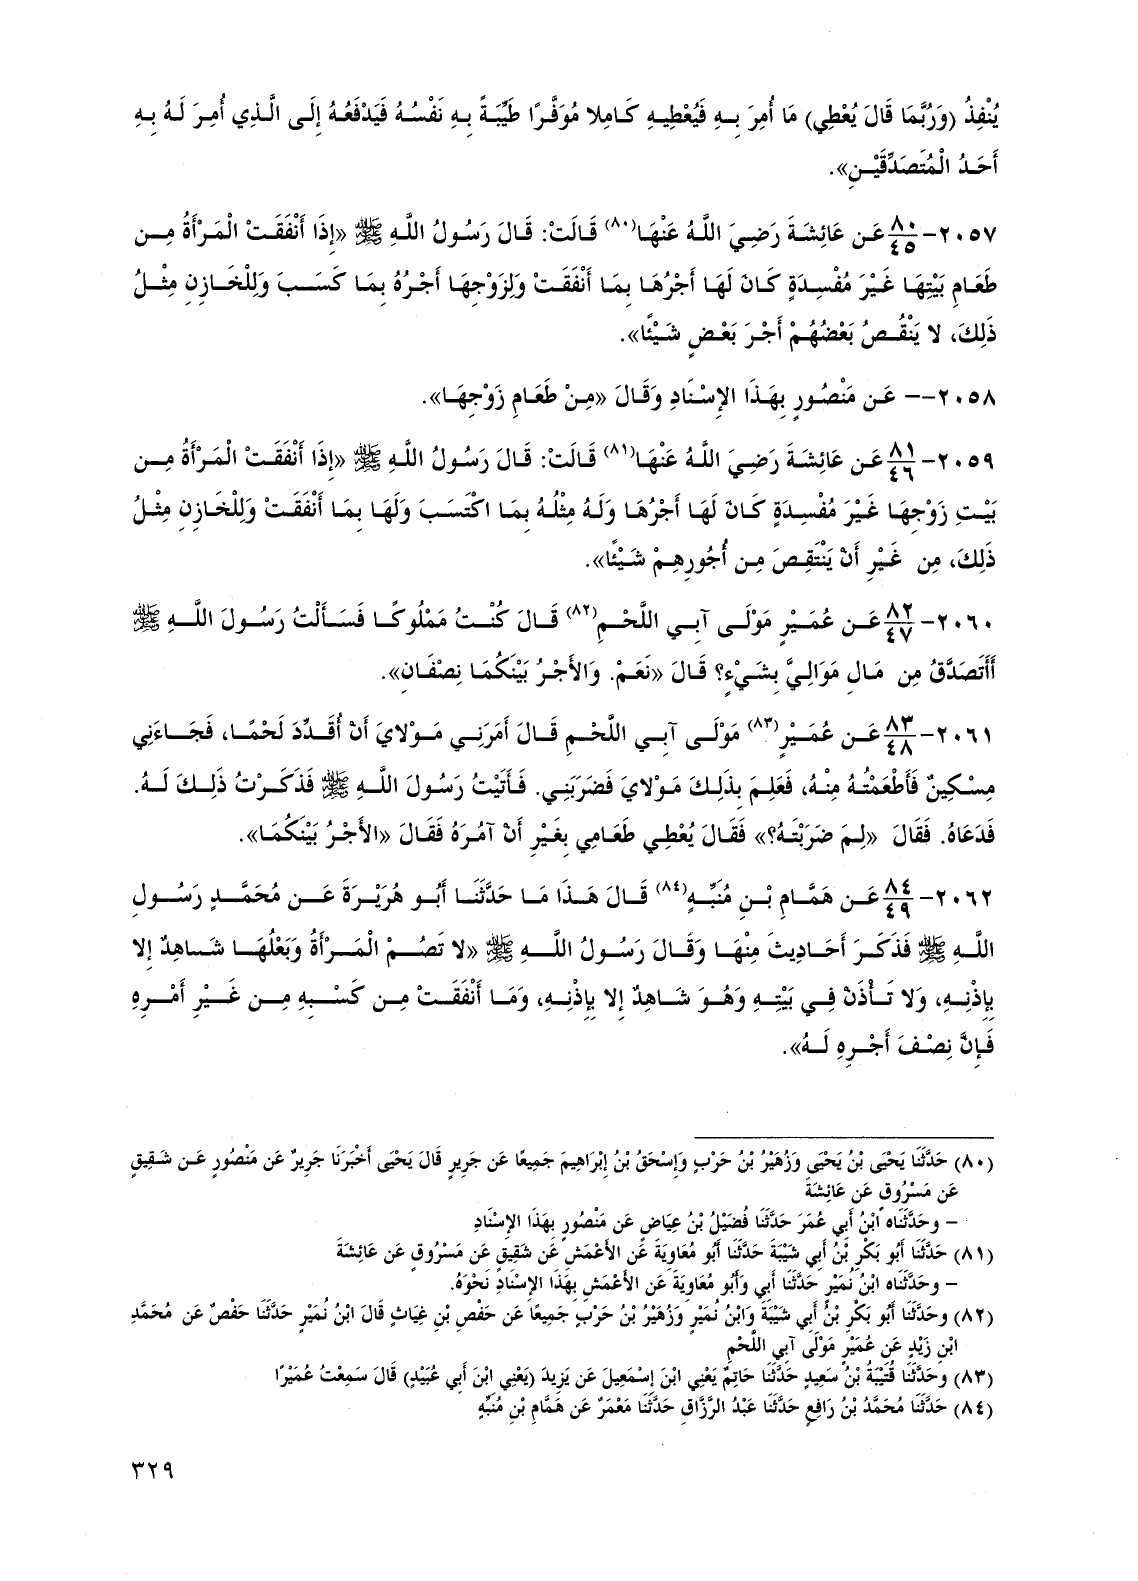 يُنْفِذُ (وَرُبَّمَا قَالَ يُعْطِي) مَا أُمِرَ بِهِ فَيُعْطِيهِ كَامِلا مُوَفَّرًا طَيِّبَةً بِهِ نَفْسُهُ فَيَدْفَعُهُ إِلَى الَّذِي أُمِرَ لَهُ بِهِ
أَحَدُ الْمُتَصَدِّقَيْنِ».
٢٠٥٧-٨٠/٤٥ عَن عَائِشَةَ رَضِيَ اللَّهُ عَنْهَا(٨٠) قَالَتْ: قَالَ رَسُولُ اللَّهِ ﷺ «إِذَا أَنْفَقَتْ الْمَرْأَةُ مِن
طَعَامِ بَيْتِهَا غَيْرَ مُفْسِدَةٍ كَانَ لَهَا أَجْرُهَا بِمَا أَنْفَقَتْ وَلِزَوْجِهَا أَجْرُهُ بِمَا كَسَبَ وَلِلْخَازِنِ مِثْلُ
ذَلِكَ، لا يَنْقُصُ بَعْضُهُمْ أَجْرَ بَعْضٍ شَيْئًا».
٢٠٥٨-- عَن مَنْصُورٍ بِهَذَا الإِسْنَادِ وَقَالَ «مِنْ طَعَامِ زَوْجِهَا».
٢٠٥٩-٨١/٤٦ عَن عَائِشَةَ رَضِيَ اللَّهُ عَنْهَا(٨١) قَالَتْ: قَالَ رَسُولُ اللَّهِ ﷺ «إِذَا أَنْفَقَتْ الْمَرْأَةُ مِن
بَيْتِ زَوْجِهَا غَيْرَ مُفْسِدَةٍ كَانَ لَهَا أَجْرُهَا وَلَهُ مِثْلُهُ بِمَا اكْتَسَبَ وَلَهَا بِمَا أَنْفَقَتْ وَلِلْخَازِنِ مِثْلُ
ذَلِكَ، مِن غَيْرِ أَنْ يَنْتَقِصَ مِن أُجُورِهِمْ شَيْئًا».
٢٠٦٠-٨٢/٤٧ عَن عُمَيْرٍ مَوْلَى آبِي اللَّحْمِ(٨٢) قَالَ كُنْتُ مَمْلُوكًا فَسَأَلْتُ رَسُولَ اللَّهِ ﷺ
أَأَتَصَدَّقُ مِن مَالِ مَوَالِيَّ بِشَيْءٍ؟ قَالَ «نَعَمْ. وَالأَجْرُ بَيْنَكُمَا نِصْفَانِ».
٢٠٦١-٨٣/٤٨ عَن عُمَيْرٍ(٨٣) مَوْلَى آبِي اللَّحْمِ قَالَ أَمَرَنِي مَوْلايَ أَنْ أُقَدِّدَ لَحْمًا، فَجَاءَنِي
مِسْكِينٌ فَأَطْعَمْتُهُ مِنْهُ، فَعَلِمَ بِذَلِكَ مَوْلايَ فَضَرَبَنِي. فَأَتَيْتُ رَسُولَ اللَّهِ ﷺ فَذَكَرْتُ ذَلِكَ لَهُ.
فَدَعَاهُ. فَقَالَ «لِمَ ضَرَبْتَهُ؟» فَقَالَ يُعْطِي طَعَامِي بِغَيْرِ أَنْ آمُرَهُ فَقَالَ «الأَجْرُ بَيْنَكُمَا».
٢٠٦٢-٨٤/٤٩ عَن هَمَّامِ بْنِ مُنَبِّهٍ(٨٤) قَالَ هَذَا مَا حَدَّثَنَا أَبُو هُرَيْرَةَ عَن مُحَمَّدٍ رَسُولِ
اللَّهِ ﷺ فَذَكَرَ أَحَادِيثَ مِنْهَا وَقَالَ رَسُولُ اللَّهِ ﷺ «لا تَصُمْ الْمَرْأَةُ وَبَعْلُهَا شَاهِدٌ إِلا
بِإِذْنِهِ، وَلا تَأْذَنْ فِي بَيْتِهِ وَهُوَ شَاهِدٌ إِلا بِإِذْنِهِ، وَمَا أَنْفَقَتْ مِن كَسْبِهِ مِن غَيْرِ أَمْرِهِ
فَإِنَّ نِصْفَ أَجْرِهِ لَهُ».
(٨٠) حَدَّثَنَا يَحْيَى بْنُ يَحْيَى وَزُهَيْرُ بْنُ حَرْبٍ وَإِسْحَقُ بْنُ إِبْرَاهِيمَ جَمِيعًا عَن جَرِيرٍ قَالَ يَحْيَى أَخْبَرَنَا جَرِيرٌ عَن مَنْصُورٍ عَن شَقِيقٍ
عَن مَسْرُوقٍ عَن عَائِشَةَ
– وحَدَّثَنَاه ابْنُ أَبِي عُمَرَ حَدَّثَنَا فُضَيْلُ بْنُ عِيَاضٍ عَن مَنْصُورٍ بِهَذَا الإِسْنَادِ
(٨١) حَدَّثَنَا أَبُو بَكْرِ بْنُ أَبِي شَيْبَةَ حَدَّثَنَا أَبُو مُعَاوِيَةَ عَن الأَعْمَشِ عَن شَقِيقٍ عَن مَسْرُوقٍ عَن عَائِشَةَ
– وحَدَّثَنَاه ابْنُ نُمَيْرٍ حَدَّثَنَا أَبِي وَأَبُو مُعَاوِيَةَ عَن الأَعْمَشِ بِهَذَا الإِسْنَادِ نَحْوَهُ.
(٨٢) وحَدَّثَنَا أَبُو بَكْرِ بْنُ أَبِي شَيْبَةَ وَابْنُ نُمَيْرٍ وَزُهَيْرُ بْنُ حَرْبٍ جَمِيعًا عَن حَفْصِ بْنِ غِيَاثٍ قَالَ ابْنُ نُمَيْرٍ حَدَّثَنَا حَفْصٌ عَن مُحَمَّدِ
ابْنِ زَيْدٍ عَن عُمَيْرٍ مَوْلَى آبِي اللَّحْمِ
(٨٣) وحَدَّثَنَا قُتَيْبَةُ بْنُ سَعِيدٍ حَدَّثَنَا حَاتِمٌ يَعْنِي ابْنَ إِسْمَعِيلَ عَن يَزِيدَ (يَعْنِي ابْنَ أَبِي عُبَيْدٍ) قَالَ سَمِعْتُ عُمَيْرًا
(٨٤) حَدَّثَنَا مُحَمَّدُ بْنُ رَافِعٍ حَدَّثَنَا عَبْدُ الرَّزَّاقِ حَدَّثَنَا مَعْمَرٌ عَن هَمَّامِ بْنِ مُنَبِّهٍ
٣٢٩